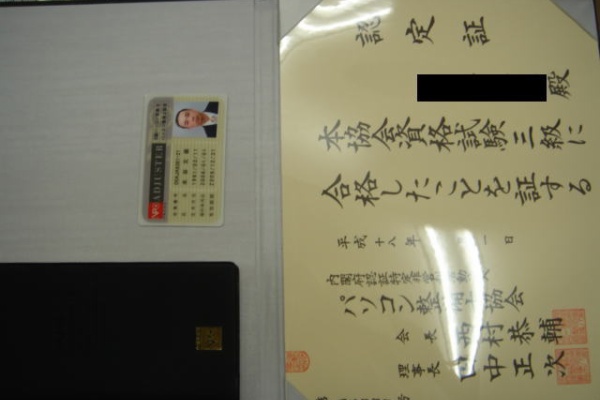 認定証
殿
本協会資格試験三級に
合格したことを証する
平成十八年 一日
内閣府認証特定非営利活動法人
パソコン整備士協会
会長 西村恭輔
理事長 田中正次
NPO ADJUSTER